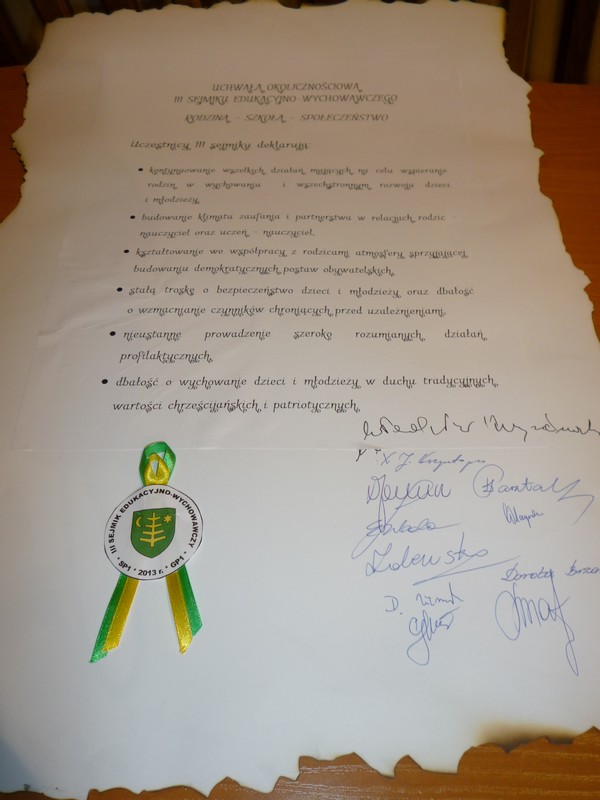 UCHWAŁA OKOLICZNOŚCIOWA
III SEJMIKU EDUKACYJNO-WYCHOWAWCZEGO
RODZINA - SZKOŁA - SPOŁECZEŃSTWO
Uczestnicy III sejmiku deklarują:
• kontynuowanie wszelkich działań mających na celu wspieranie
rodzin w wychowaniu i wszechstronnym rozwoju dzieci
i młodzieży,
• budowanie klimatu zaufania i partnerstwa w relacjach rodzic -
nauczyciel oraz uczeń - nauczyciel,
• kształtowanie we współpracy z rodzicami atmosfery sprzyjającej
budowaniu demokratycznych postaw obywatelskich,
• stałą troskę o bezpieczeństwo dzieci i młodzieży oraz dbałość
o wzmacnianie czynników chroniących przed uzależnieniami,
• nieustanne prowadzenie szeroko rozumianych działań
profilaktycznych,
• dbałość o wychowanie dzieci i młodzieży w duchu tradycyjnych
wartości chrześcijańskich i patriotycznych,
III SEJMIK EDUKACYJNO-WYCHOWAWCZY
* SP1 * 2013 r. * GP1 *
Dorota
D.